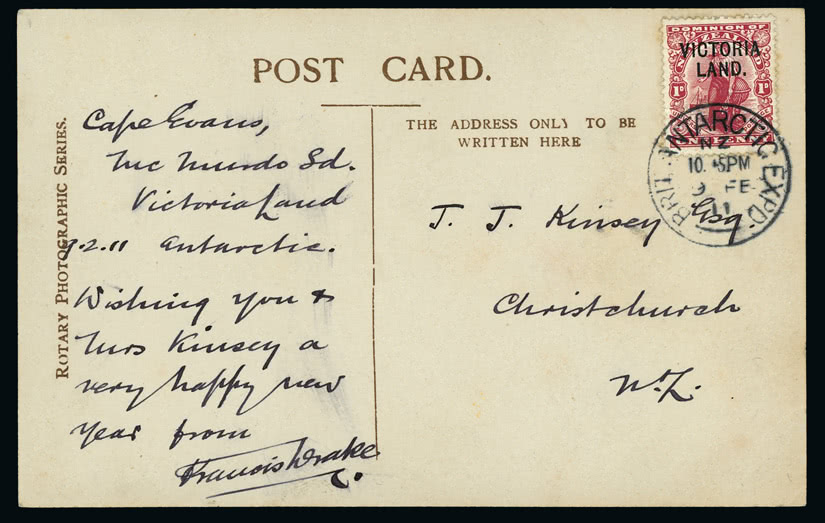 POST CARD.
THE ADDRESS ONLY TO BE
WRITTEN HERE
ROTARY PHOTOGRAPHIC SERIES.
Cape Evans,
Mc Murdo Sd.
Victoria Land
9.2.11 Antarctic.
Wishing you &
Mrs Kinsey a
very happy new
year from
Francis Drake
J. J. Kinsey Esq.
Christchurch
N.Z.
DOMINION OF
N ZEALAND
VICTORIA
LAND.
1D 1D
BRIT. ANTARCTIC EXPD.
NZ
PM
9 FE
11